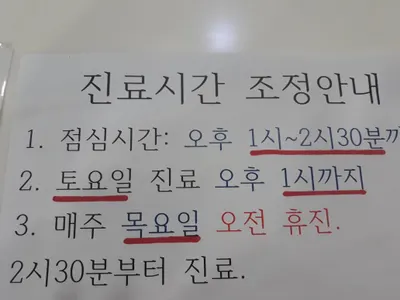 진료시간 조정안내
1. 점심시간: 오후 1시~2시30분까
2. 토요일 진료 오후 1시까지
3. 매주 목요일 오전 휴진.
2시30분부터 진료.